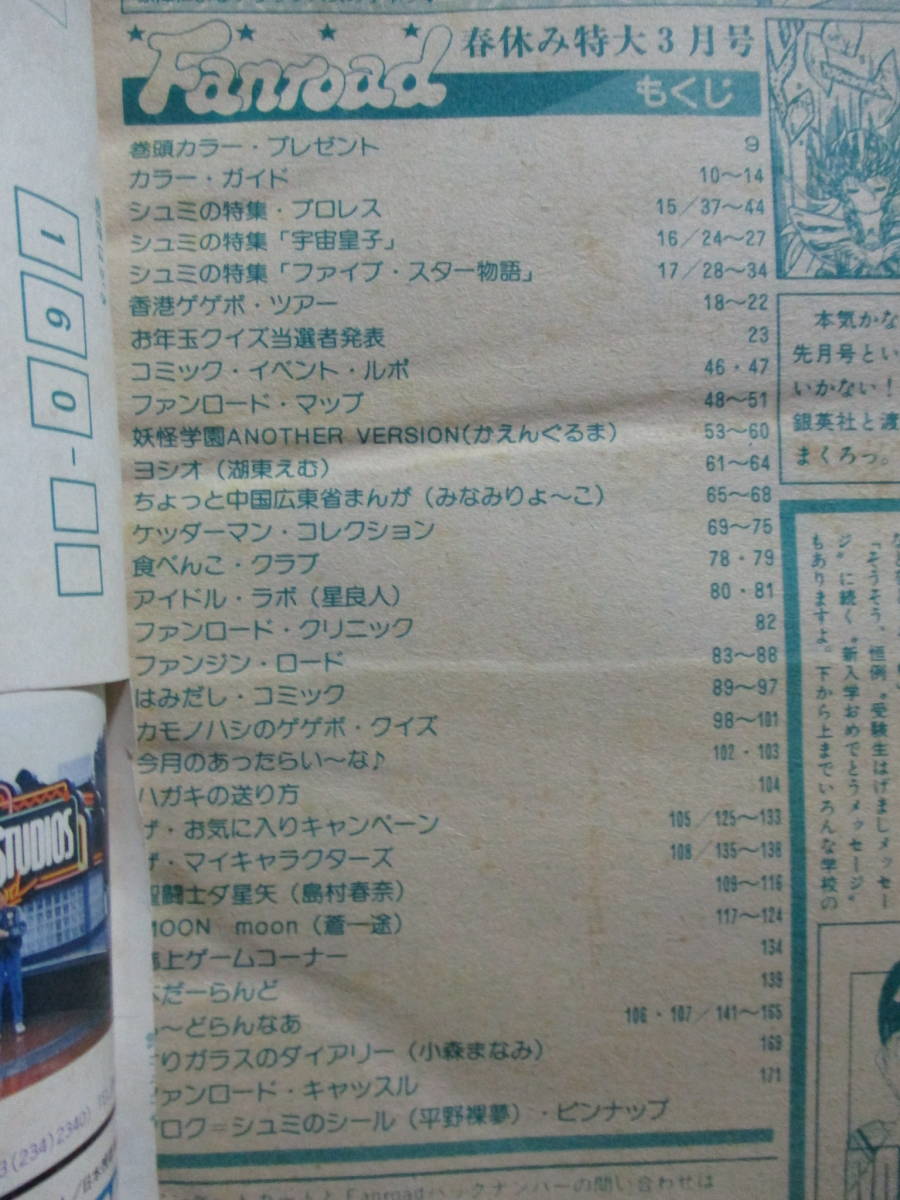 Fanroad 春休み特大3月号
もくじ
巻頭カラー・プレゼント 9
カラー・ガイド 10〜14
シュミの特集・プロレス 15/37〜44
シュミの特集「宇宙皇子」 16/24〜27
シュミの特集「ファイブ・スター物語」 17/28〜34
香港ゲゲボ・ツアー 18〜22
お年玉クイズ当選者発表 23
コミック・イベント・ルポ 46・47
ファンロード・マップ 48〜51
妖怪学園ANOTHER VERSION(かえんぐるま) 53〜60
ヨシオ(湖東えむ) 61〜64
ちょっと中国広東省まんが(みなみりょ〜こ) 65〜68
ケッダーマン・コレクション 69〜75
食べんこ・クラブ 78・79
アイドル・ラボ(星良人) 80・81
ファンロード・クリニック 82
ファンジン・ロード 83〜88
はみだし・コミック 89〜97
カモノハシのゲゲボ・クイズ 98〜101
今月のあったらい〜な♪ 102・103
ハガキの送り方 104
ザ・お気に入りキャンペーン 105/125〜133
ザ・マイキャラクターズ 108/135〜138
聖闘士ダ星矢(島村春奈) 109〜116
MOON moon(蒼一途) 117〜124
上ゲームコーナー 134
だーらんど 139
〜どらんなあ 106・107/141〜165
りガラスのダイアリー(小森まなみ) 169
ファンロード・キャッスル 171
フロク=シュミのシール(平野裸夢)・ピンナップ
Fanroadバックナンバーの問い合わせは
本気かな
先月号とい
いかない!
銀英社と渡
まくろっ。
「そうそう、恒例〝受験生はげましメッセー
ジ〟に続く〝新入学おめでとうメッセージ〟
もありますよ。下から上までいろんな学校の
160-
STUDIOS
3(234)2340)